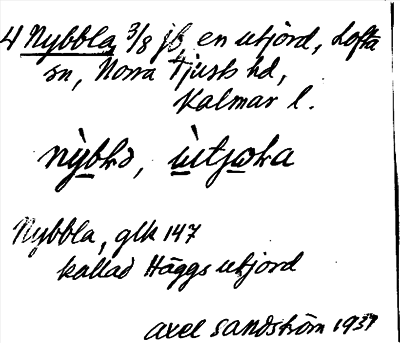 4 Nybbla, 3/8 jb, en utjord, Lofta
sn, Norra Tjusts hd,
Kalmar l.
Nybbla, glk 147
kallad Häggs utjord
Axel Sandström 1937